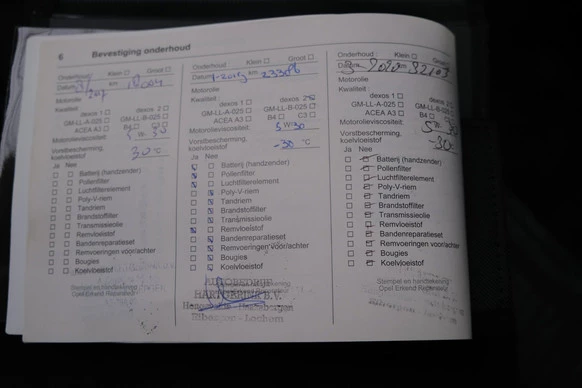 6 Bevestiging onderhoud
Onderhoud: Klein ☐ Groot ☐
Datum km
Motorolie
Kwaliteit: dexos 1 ☐ dexos 2 ☐
GM-LL-A-025 ☐ GM-LL-B-025 ☐
ACEA A3 ☐ B4 ☐ C3 ☐
Motorolieviscositeit:
Vorstbescherming,
koelvloeistof
Ja Nee
☐ ☐ Batterij (handzender)
☐ ☐ Pollenfilter
☐ ☐ Luchtfilterelement
☐ ☐ Poly-V-riem
☐ ☐ Tandriem
☐ ☐ Brandstoffilter
☐ ☐ Transmissieolie
☐ ☐ Remvloeistof
☐ ☐ Bandenreparatieset
☐ ☐ Remvoeringen voor/achter
☐ ☐ Bougies
☐ ☐ Koelvloeistof
Stempel en handtekening
Opel Erkend Reparateur
Onderhoud: Klein ☐ Groot ☐
Datum km
Motorolie
Kwaliteit: dexos 1 ☐ dexos 2
GM-LL-A-025 ☐ GM-LL-B-025 ☐
ACEA A3 ☐ B4 ☐ C3 ☐
Motorolieviscositeit: 5W30
Vorstbescherming,
koelvloeistof -30 °C
Ja Nee
Batterij (handzender)
Pollenfilter
Luchtfilterelement
Poly-V-riem
Tandriem
Brandstoffilter
Transmissieolie
Remvloeistof
Bandenreparatieset
Remvoeringen voor/achter
Bougies
Koelvloeistof
AUTOBEDRIJF
B.V.
Lochem
Onderhoud: Klein ☐ Groot ☐
Datum km
Motorolie
Kwaliteit: dexos 1 ☐ dexos 2
GM-LL-A-025 ☐ GM-LL-B-025
ACEA A3 ☐ B4 ☐ C3 ☐
Motorolieviscositeit:
Vorstbescherming,
koelvloeistof -30
Ja Nee
Batterij (handzender)
Pollenfilter
Luchtfilterelement
Poly-V-riem
Tandriem
Brandstoffilter
Transmissieolie
Remvloeistof
Bandenreparatieset
Remvoeringen voor/achter
Bougies
Koelvloeistof
Stempel en handtekening
Opel Erkend Reparateur